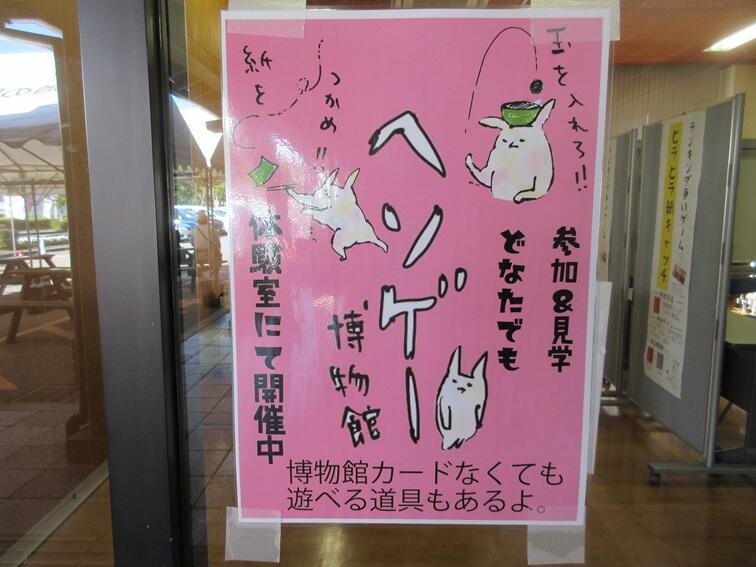 玉を入れろ!!
紙を
つかめ!!
ヘンゲー
博物館
参加&見学
どなたでも
体験室にて開催中
博物館カードなくても
遊べる道具もあるよ。
ランキング争いゲーム
ヒラヒラ紙キャッチ